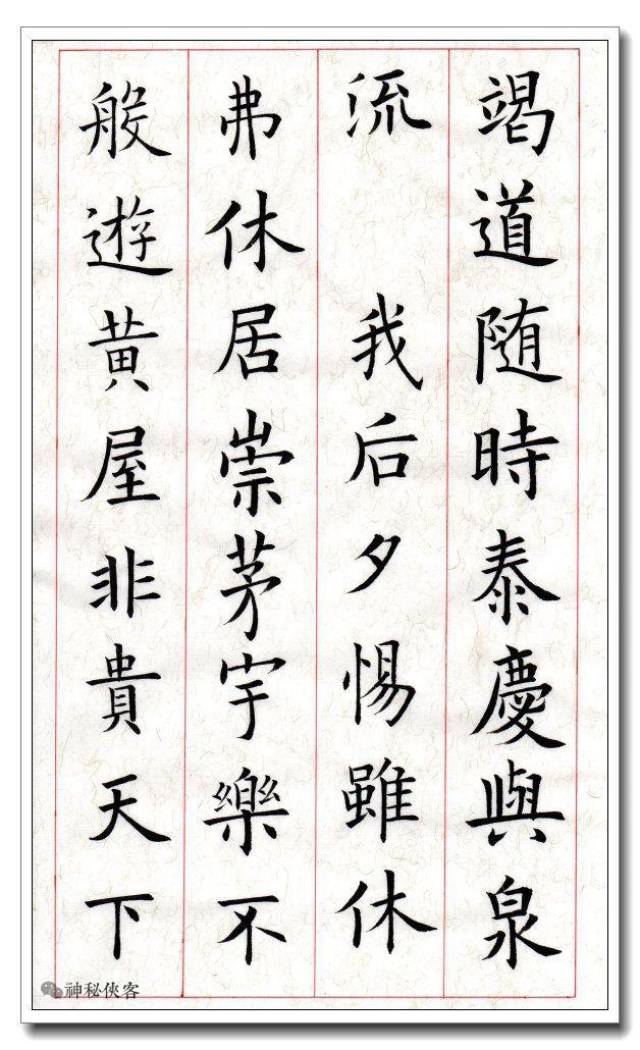 竭道随時泰慶與泉
流 我后夕惕雖休
弗休居崇茅宇樂不
般遊黄屋非貴天下
神秘俠客